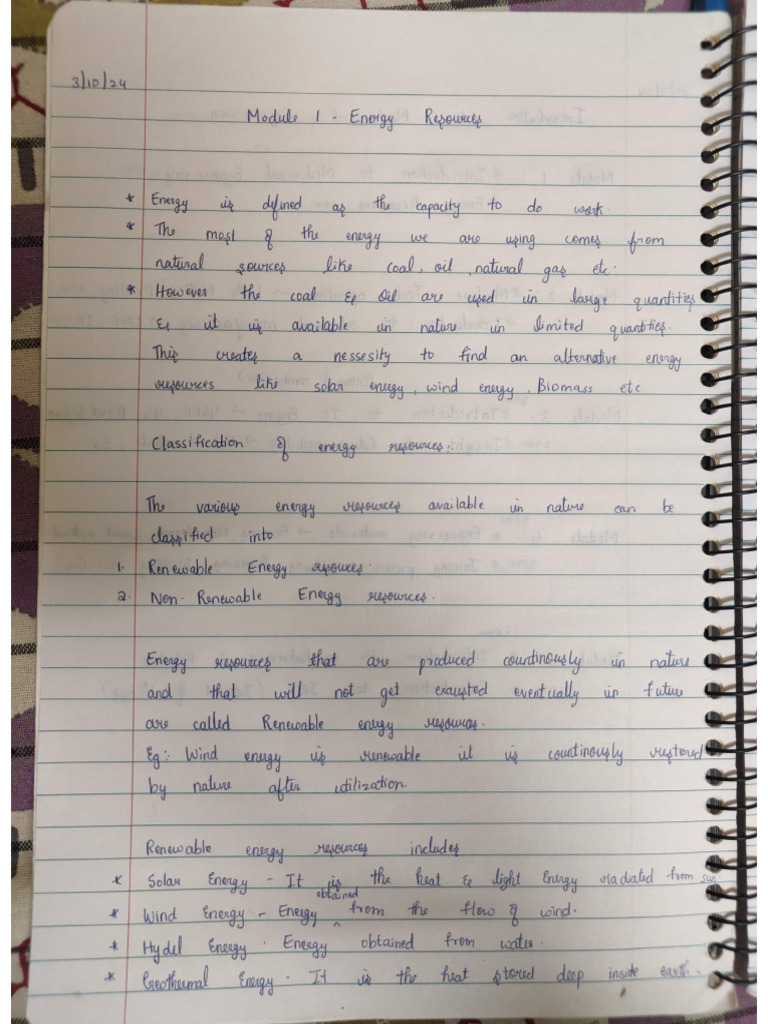 3/10/24
Module 1 - Energy Resources
* Energy is defined as the capacity to do work.
* The most of the energy we are using comes from
natural sources like coal, oil, natural gas etc.
* However the coal & oil are used in large quantities
& it is available in nature in limited quantities.
This creates a nessesity to find an alternative energy
resources like solar energy, wind energy, Biomass etc
Classification of energy resources.
The various energy resources available in nature can be
classified into
1. Renewable Energy resources.
2. Non-Renewable Energy resources.
Energy resources that are produced countinously in nature
and that will not get exausted eventually in future
are called Renewable energy resources.
Eg:- Wind energy is renewable it is countinously restored
by nature after utilization.
Renewable energy resources includes
* Solar Energy - It is the heat & light Energy radiated from sun.
* Wind Energy - Energy obtained from the flow of wind.
* Hydel Energy - Energy obtained from water.
* Geothermal Energy - It is the heat stored deep inside earth.